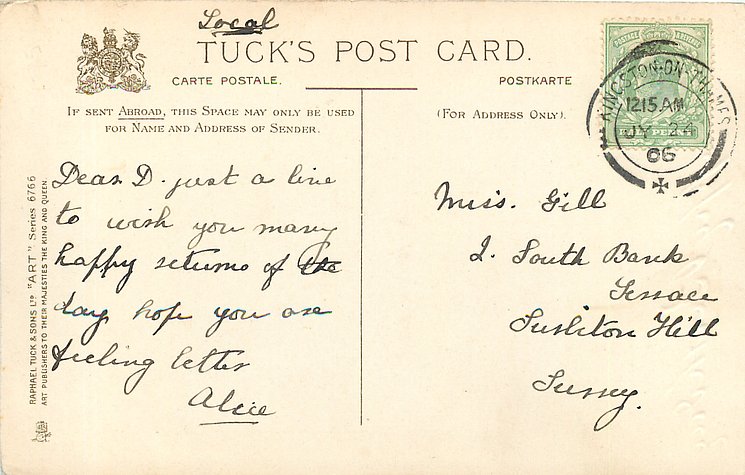 Local
TUCK'S POST CARD.
CARTE POSTALE.
POSTKARTE
IF SENT ABROAD, THIS SPACE MAY ONLY BE USED
FOR NAME AND ADDRESS OF SENDER.
(FOR ADDRESS ONLY).
POSTAGE REVENUE
KINGSTON-ON-THAMES
12 15 AM
JY 24
06
Dear D. just a line
to wish you many
happy returns of the
day hope you are
feeling better
Alice
Miss. Gill
2. South Bank
Terrace
Surbiton Hill
Surrey.
RAPHAEL TUCK & SONS LTD "ART" Series 6766
ART PUBLISHERS TO THEIR MAJESTIES THE KING AND QUEEN